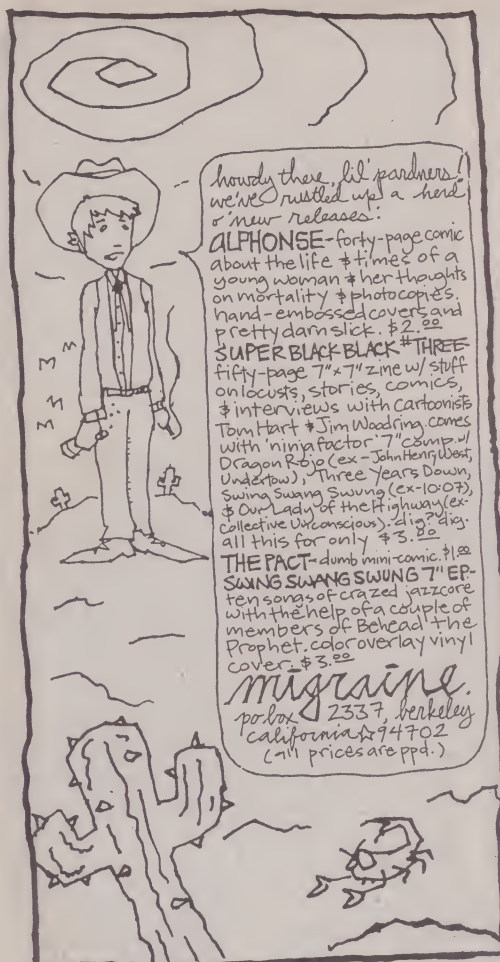 howdy there, lil' pardners!
we've rustled up a herd
o' new releases:
ALPHONSE-forty-page comic
about the life & times of a
young woman & her thoughts
on mortality & photocopies.
hand-embossed covers and
pretty darn slick. $2.00
SUPER BLACK BLACK #THREE-
fifty-page 7"x7" zine w/ stuff
on locusts, stories, comics,
& interviews with Cartoonists
Tom Hart & Jim Woodring. comes
with 'ninja factor' 7" comp. w/
Dragon Rojo (ex-John Henry West,
Undertow), Three Years Down,
Swing Swang Swung (ex-10:07),
& Our Lady of the Highway (ex-
collective Unconscious). dig? dig.
all this for only $3.00
THE PACT-dumb mini-comic. $1.00
SWING SWANG SWUNG 7" EP-
ten songs of crazed jazzcore
with the help of a couple of
members of Behead the
Prophet. color overlay vinyl
cover. $3.00
migraine.
po box 2337, berkeley
california☆94702
(all prices are ppd.)